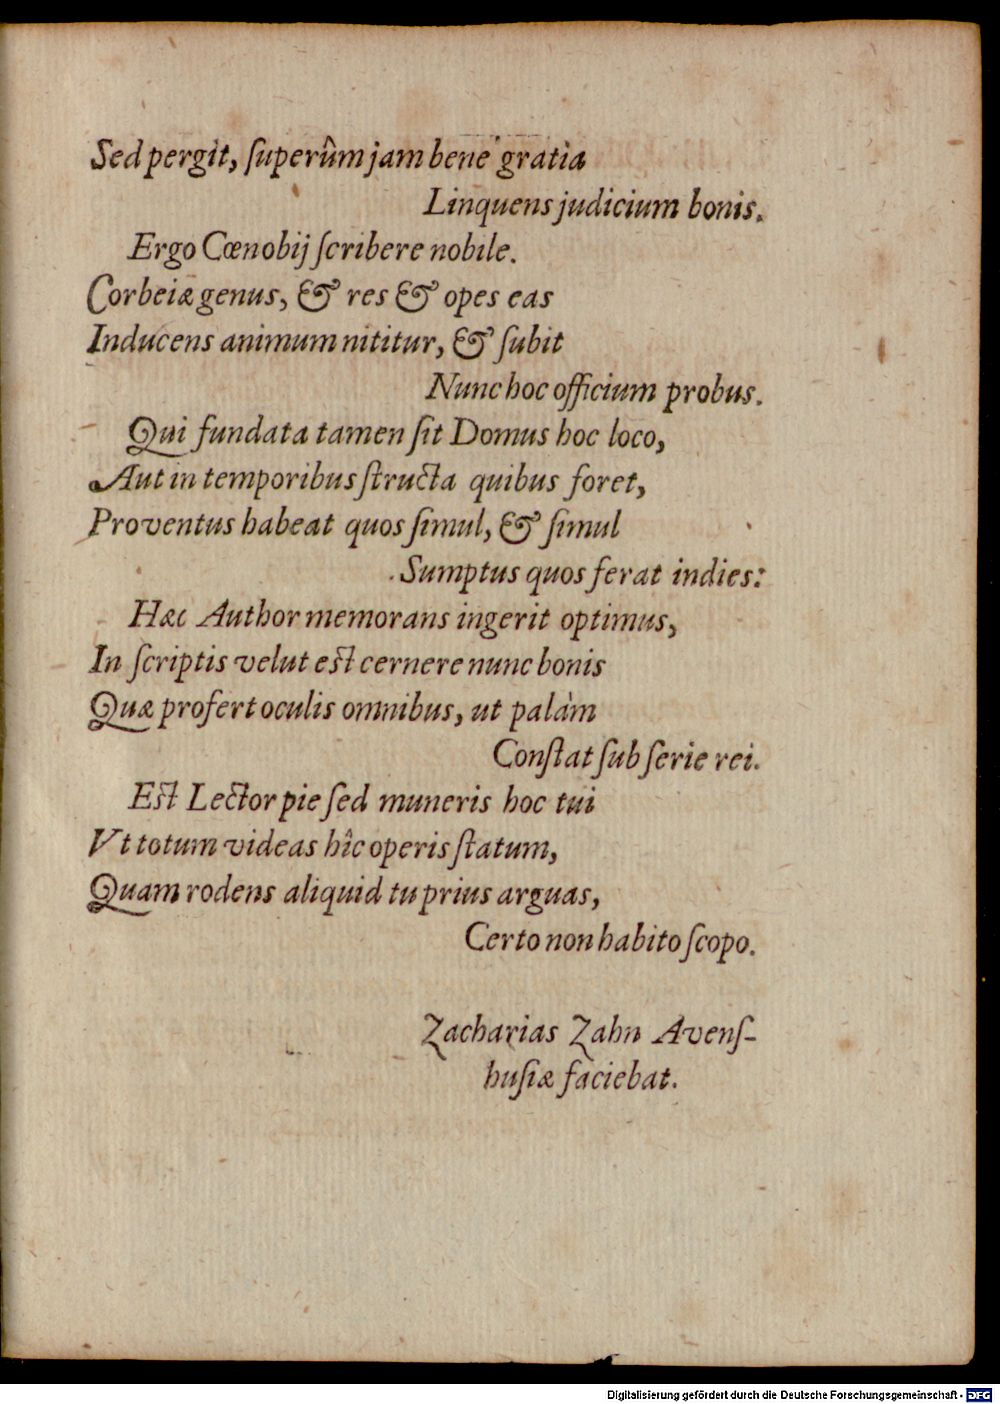 Sed pergit, ſuperûm jam bene gratia
Linquens judicium bonis.
Ergo Cœnobij ſcribere nobile.
Corbeiæ genus, & res & opes eas
Inducens animum nititur, & ſubit
Nunc hoc officium probus.
Qui fundata tamen ſit Domus hoc loco,
Aut in temporibus ſtructa quibus foret,
Proventus habeat quos ſimul, & ſimul
Sumptus quos ferat indies:
Hæc Author memorans ingerit optimus,
In ſcriptis velut eſt cernere nunc bonis
Quæ profert oculis omnibus, ut palàm
Conſtat ſub ſerie rei.
Eſt Lector pie ſed muneris hoc tui
Vt totum videas hîc operis ſtatum,
Quam rodens aliquid tu prius arguas,
Certo non habito ſcopo.
Zacharias Zahn Avenſ-
huſiæ faciebat.
Digitalisierung gefördert durch die Deutsche Forschungsgemeinschaft - DFG